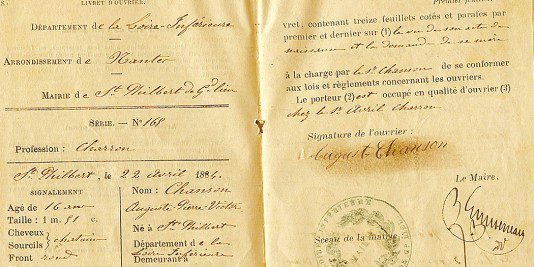 LIVRET D'OUVRIER.
DÉPARTEMENT de la Loire-Inférieure
ARRONDISSEMENT de Nantes
MAIRIE de St Philbert de Gd lieu
SÉRIE. — N° 168
Profession : Charron
St Philbert, le 22 avril 1884.
SIGNALEMENT
Age de 16 ans
Taille : 1 m. 51 c.
Cheveux
Sourcils
châtains
Front rond
Nom : Chanson
Auguste Pierre Victor
Né à St Philbert
Département de la
Loire Inférieure
Demeurant à
Premier feuillet
vret, contenant treize feuillets cotés et parafés par
premier et dernier sur (1) la vue de son acte de
naissance et la demande de sa mère
à la charge par le Sr Chanson de se conformer
aux lois et règlements concernant les ouvriers.
Le porteur (2) est occupé en qualité d'ouvrier (3)
chez le Sr Avril Charron
Signature de l'ouvrier :
August Chanson
Le Maire,
Sceau de la mairie